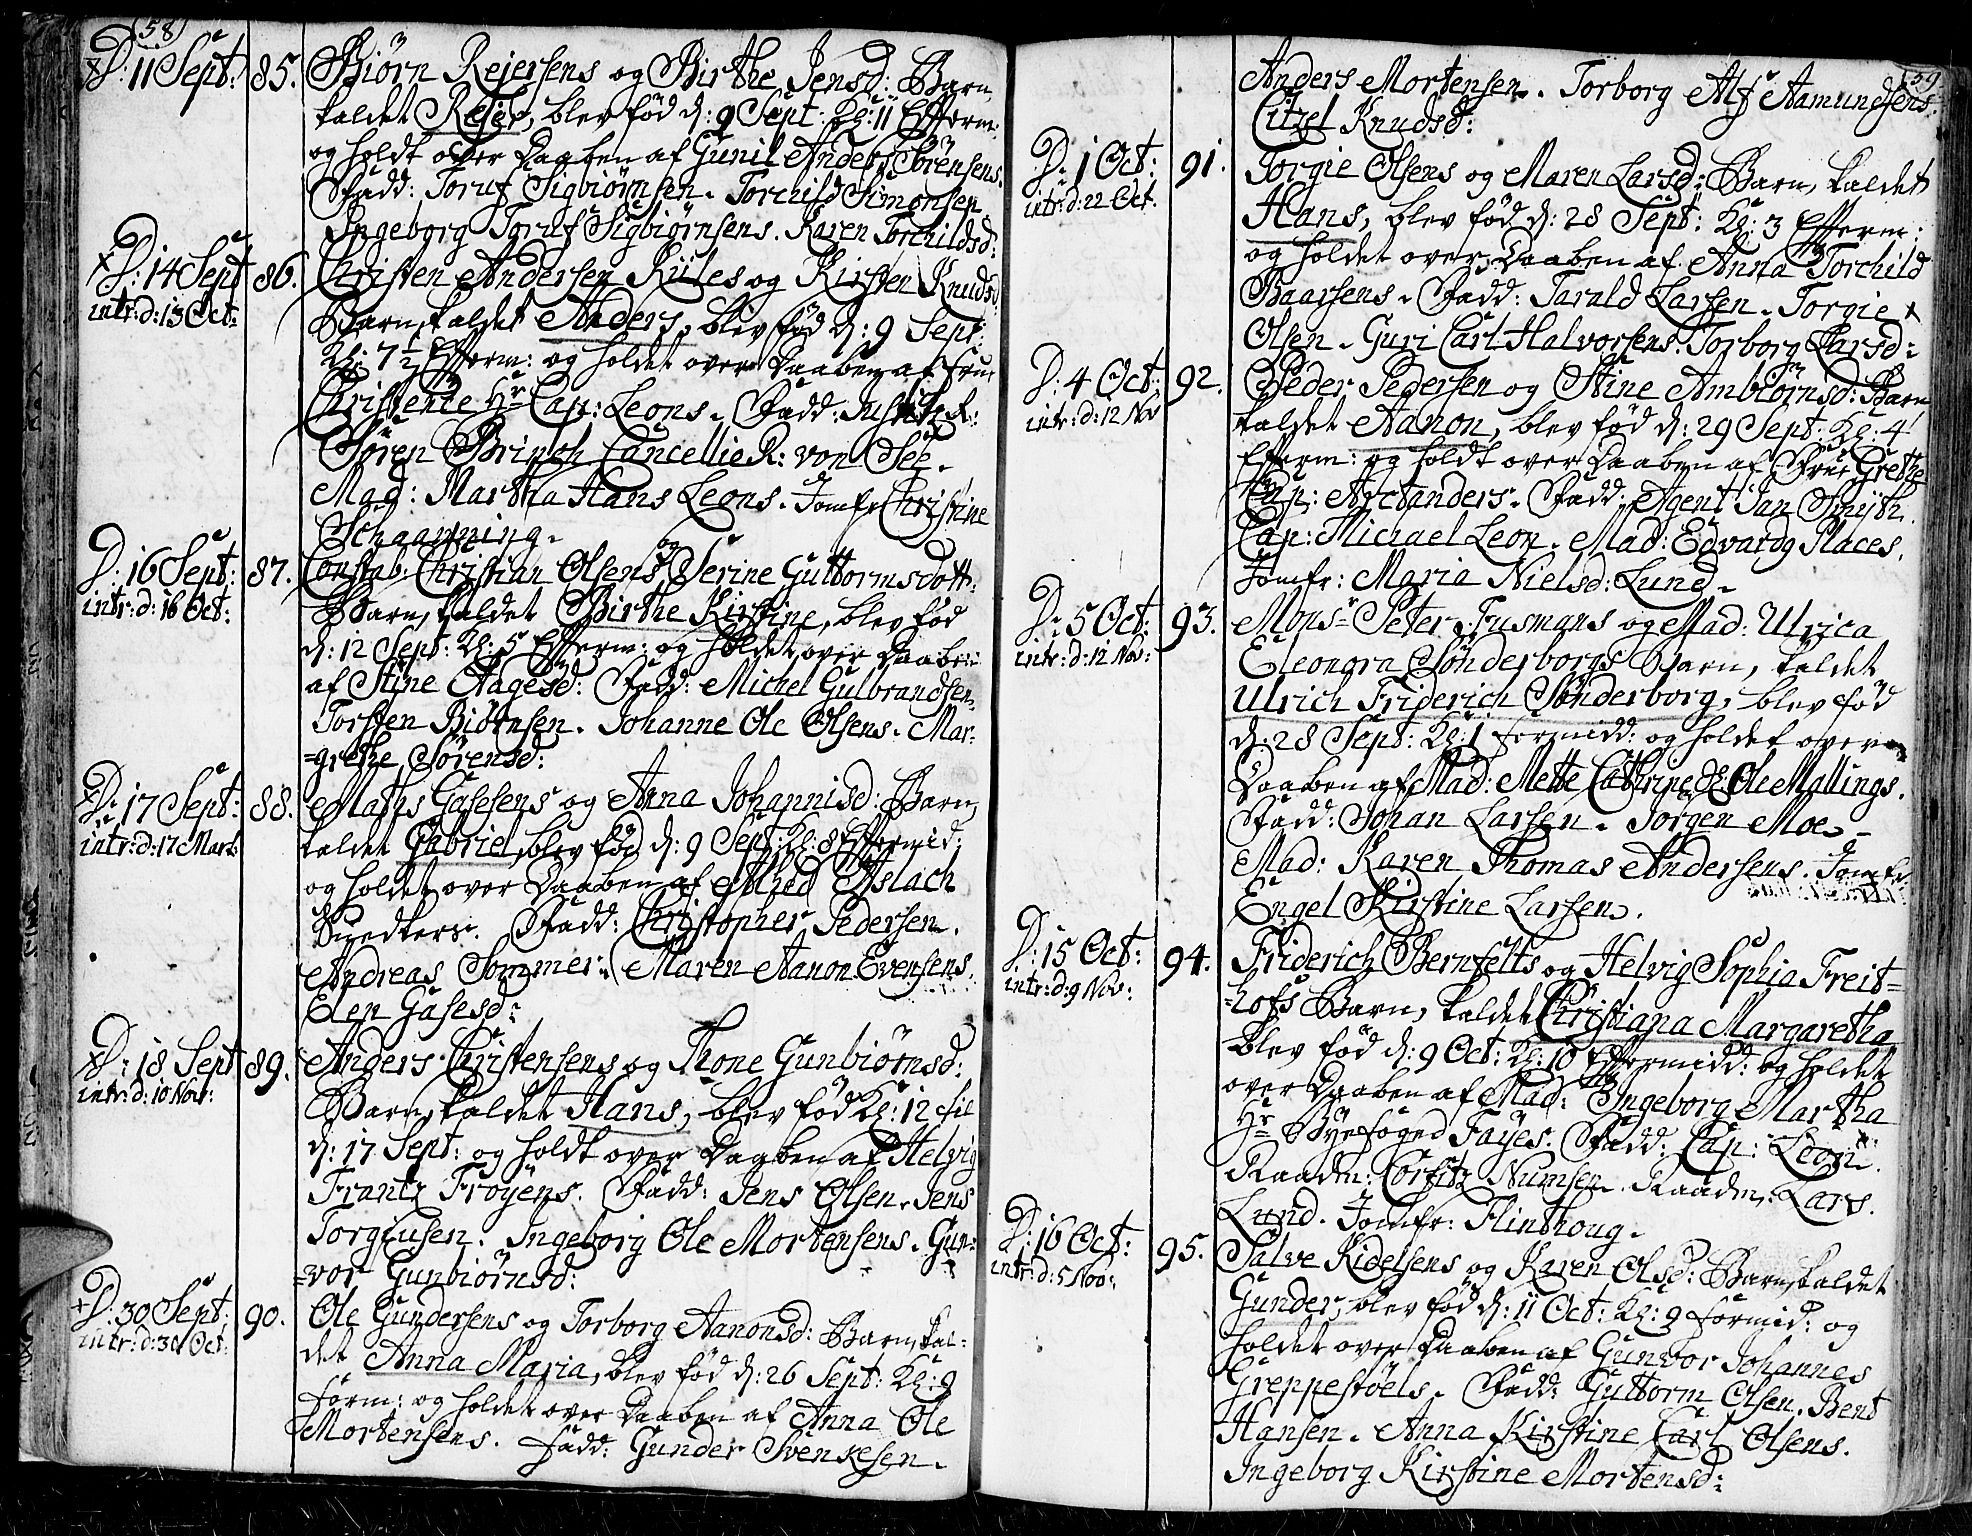 58
D: 11 Sept: 85. Biørn Rejersens og Birthe Jensd: Barn,
kaldet Rejer, blev fød d: 9 Sept: Kl: 11 Efterm:
og holdt over Daaben af Gunil Anders Sørensens.
Fadd: Toruf Sigbiørnsen. Torchild Simonsen
Ingeborg Toruf Sigbiørnsens. Karen Torchildsd:
D: 14 Sept 86. Christen Andersen Kiiles og Kirsten Knudsd:
intr: d: 13 Oct: Barn, kaldet Anders, blev fød d: 9 Sept:
Kl: 7½ Efterm: og holdet over Daaben af Frue
Christence Hr Cap: Leons. Fadd: Justitz R:
Søren Brinch Cancellie R: von See.
Mad: Martha Hans Leons. Jomfr Christine
Schaanning.
D: 16 Sept: 87. Constab: Christian Olsens og Serine Guttormsdott:
intr: d: 16 Oct: Barn, kaldet Birthe Kirstine, blev fød
d: 12 Sept: Kl: 5 Efterm: og holdet over Daaben
af Stine Aagesd: Fadd: Michel Gulbrandsen.
Torsten Biørnsen. Johanne Ole Olsens. Mar-
=grethe Sørensd:
D: 17 Sept: 88. Maths Gasesens og Anna Johannisd: Barn,
intr: d: 17 Mart: kaldet Gabriel, blev fød d: 9 Sept: Kl: 8 Eftermid:
og holdet over Daaben af Alhed Aslach
Snedkers. Fadd: Christopher Pedersen.
Andreas Sommer. Maren Aanon Evensens.
Elen Gasesd:
D: 18 Sept 89. Anders Christensens og Thone Gunbiørnsd:
intr: d: 10 Nov: Barn, kaldet Hans, blev fød Kl: 12 til
d: 17 Sept: og holdt over Daaben af Helvig
Frantz Frøyens. Fadd: Jens Olsen. Jens
Torgiusen. Ingeborg Ole Mortensens. Gun=
=vor Gunbiørnsd:
D: 30 Sept: 90. Ole Gundersens og Torborg Aanonsd: Barn, kal=
intr: d: 30 Oct: det Anna Maria, blev fød d: 26 Sept: Kl: 9
Form: og holdet over Daaben af Anna Ole
Mortensens. Fadd: Gunder Svenkesen.
59
Anders Mortensen. Torborg Alf Aamundsens.
Citzel Knudsd:
D: 1 Oct: 91. Torgie Olsens og Maren Larsd: Barn, kaldet
intr: d: 22 Oct. Hans, blev fød d: 28 Sept: Kl: 3 Efterm:
og holdet over Daaben af Anna Torchild
Baarsens. Fadd: Tarald Larsen. Torgie
Olsen. Guri Carl Halvorsens. Torborg Larsd:
D: 4 Oct: 92. Peder Pedersen og Stine Ambiørnsd: Barn
intr: d: 12 Nov kaldet Aanon, blev fød d: 29 Sept: Kl: 4
Efterm: og holdt over Daaben af Frue Grethe
Cap: Arctanders. Fadd: Agent Jan Smijth.
Cap: Michael Leon. Mad: Edvardg Places.
Jomfr: Maria Nielsd: Lund.
D: 5 Oct: 93. Monsr Peter Fusmans og Mad: Ulrica
intr: d: 12 Nov: Eleonora Sønderborgs Barn, kaldet
Ulrich Friderich Sønderborg, blev fød
d: 28 Sept: Kl: 1 Formidd: og holdet over
Daaben af Mad: Mette Cathrine Ole Mallings.
Fadd: Johan Larsen. Jørgen Moe.
Mad: Karen Thomas Andersens. Jomfr:
Engel Kirstine Larsen.
D: 15 Oct: 94. Friderich Bernfelts og Helvig Sophia Freit=
intr: d: 9 Nov: =hofs Barn, kaldet Christiana Margaretha
blev fød d: 9 Oct: Kl: 10 Eftermidd: og holdet
over Daaben af Mad: Ingeborg Martha
Hr Byefoged Fayes. Fadd: Cap: Leon.
Raadm: Corfitz Numsen. Raadm: Lars
Lund. Jomfr: Flinthoug.
D: 16 Oct: 95. Salve Kidelsens og Karen Olsd: Barn, kaldet
intr: d: 5 Nov: Gunder, blev fød d: 11 Oct: Kl: 9 Formid: og
holdet over Daaben af Gunvor Johannes
Greppestøels. Fadd: Guttorm Olsen. Bent
Hansen. Anna Kirstine Carl Olsens.
Ingeborg Kirstine Mortensd: